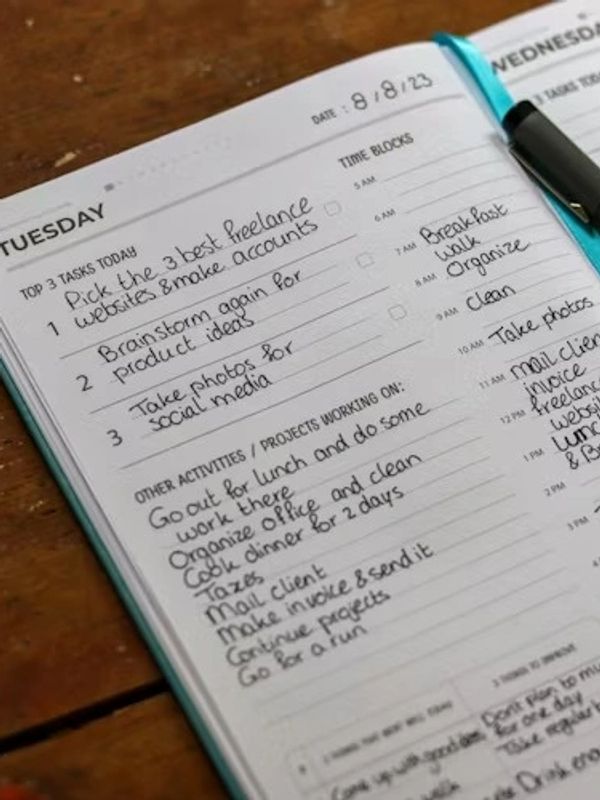 WEDNESDA
3 TASKS TODA
DATE : 8 / 8 / 23
TUESDAY
TOP 3 TASKS TODAY
1 Pick the 3 best freelance
websites & make accounts
2 Brainstorm again for
product ideas
3 Take photos for
social media
OTHER ACTIVITIES / PROJECTS WORKING ON:
Go out for lunch and do some
work there
Organize office and clean
Cook dinner for 2 days
Taxes
Mail client
Make invoice & send it
Continue projects
Go for a run
TIME BLOCKS
5 AM
6 AM
7 AM Breakfast
walk
8 AM Organize
9 AM Clean
10 AM Take photos
11 AM Mail clien
invoice
12 PM freelanc
websi
1 PM Lunc
& B
2 PM
3 PM
3 THINGS THAT WENT WELL TODAY
Came up with good
week
3 THINGS TO IMPROVE
Don't plan to mu
for one day
Take regular b
Drink eno